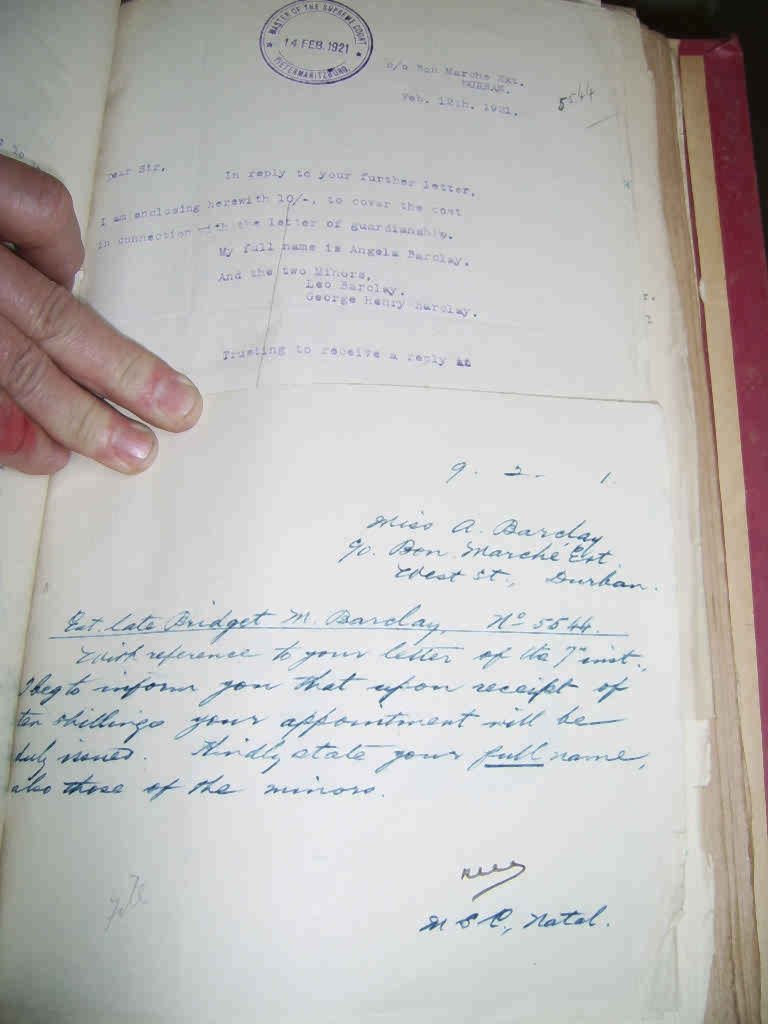 MASTER OF THE SUPREME COURT
14 FEB. 1921
PIETERMARITZBURG.
c/o Bon Marche Ext.
DURBAN.
Feb. 12th. 1921.
5544
Dear Sir,
In reply to your further letter,
I am enclosing herewith 10/-, to cover the cost
in connection with the letter of guardianship.
My full name is Angela Barclay.
And the two Minors,
Leo Barclay.
George Henry Barclay.
Trusting to receive a reply at
9. 2. 1.
Miss A. Barclay
c/o. Bon Marché Ext.
West St., Durban.
Est. late Bridget M. Barclay, No 5544.
With reference to your letter of the 7th inst.,
I beg to inform you that upon receipt of
ten shillings your appointment will be
duly issued. Kindly state your full name,
also those of the minors.
File
M S C, Natal.